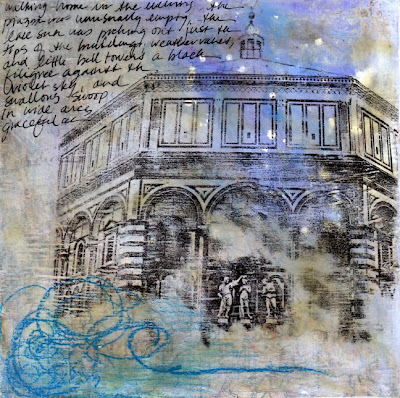 walking home in the evening, the
piazza was unusually empty. the
late sun was picking out just the
tops of the buildings, weathervanes,
and little bell towers a black
filigree against the
violet sky, and
swallows swoop
in wide arcs
graceful